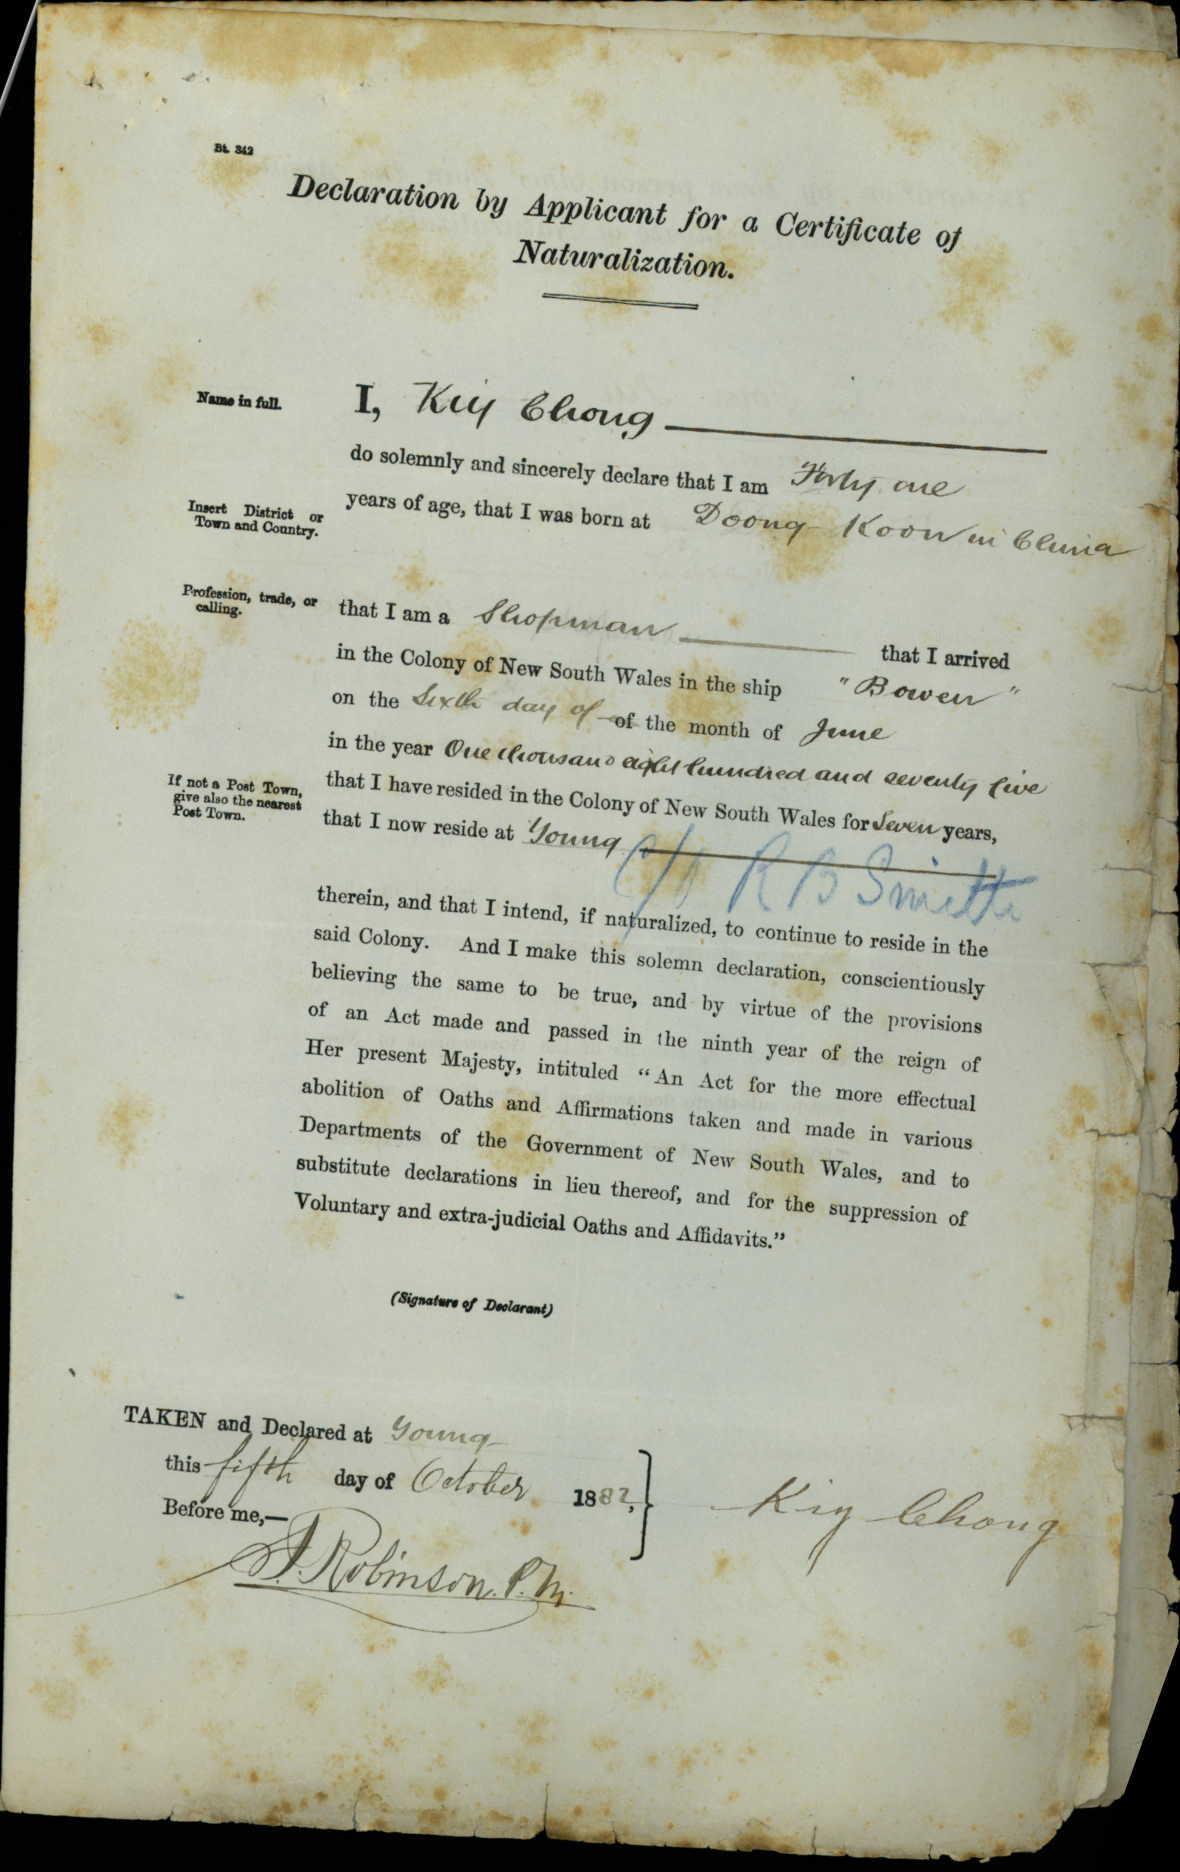 Bt. 342
Declaration by Applicant for a Certificate of
Naturalization.
Name in full.
I, Kiy Chong
do solemnly and sincerely declare that I am Forty one
Insert District or
Town and Country.
years of age, that I was born at Doong Koon in China
Profession, trade, or
calling.
that I am a Shopman that I arrived
in the Colony of New South Wales in the ship "Bowen"
on the Sixth day of of the month of June
in the year One thousand eight hundred and seventy five
If not a Post Town,
give also the nearest
Post Town.
that I have resided in the Colony of New South Wales for Seven years,
that I now reside at Young
c/o R B Smith
therein, and that I intend, if naturalized, to continue to reside in the
said Colony. And I make this solemn declaration, conscientiously
believing the same to be true, and by virtue of the provisions
of an Act made and passed in the ninth year of the reign of
Her present Majesty, intituled "An Act for the more effectual
abolition of Oaths and Affirmations taken and made in various
Departments of the Government of New South Wales, and to
substitute declarations in lieu thereof, and for the suppression of
Voluntary and extra-judicial Oaths and Affidavits."
(Signature of Declarant)
TAKEN and Declared at Young
this fifth day of October 1882,
Kiy Chong
Before me,—
J. Robinson. P.M.